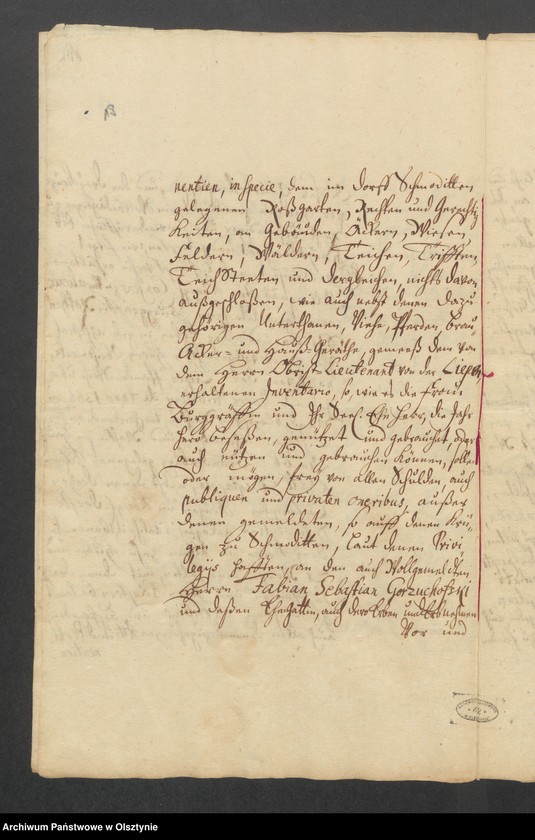 nentien, in specie, dem im Dorff Schmoditten
gelegenen Roßgarten, Rechten und Gerechtig
keiten, an Gebäuden, Äckern, Wiesen
Feldern, Wäldern, Teichen, Trifften,
Teich Steeten und dergleichen, nichts davon
außgeschloßen, wie auch nebst denen dazu
gehörigen Unterthanen, Viehe, Pferden, Brau
Acker- und Hauß-Geräthe, gemeeß dem von
dem Herrn Obrist-Lieutenant von der
erhaltenen Inventario, so, wie es die Frau
Burggräffin und Ihr Seel. Ehe Herr, die Jahr
hero beseßen, genützet und gebrauchet, oder
auch nützen und gebrauchen können, sollen
oder mögen, frey von allen Schulden, auch
publiquen und privaten oneribus, außer
denen gemeldeten, so auff denen Krü-
gen zu Schmoditten, laut denen Privi
legijs hafften, an den auch Wollgemeldten
Herrn Fabian Sebastian Gorzuchofski
und deßen Ehegattin, auch dero Erben und Erbnehmen
Vor und
Archiwum Państwowe w Olsztynie